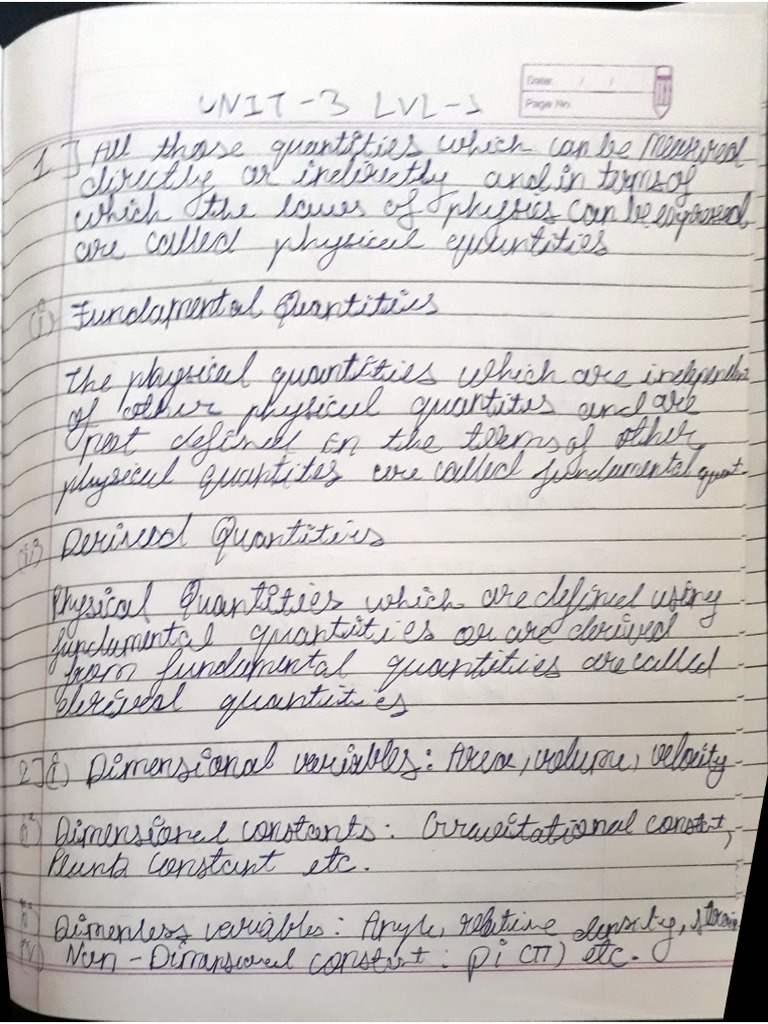 Date: / /
Page No.
UNIT-3 LVL-1
1] All those quantities which can be measured
directly or indirectly and in terms of
which the laws of physics can be expressed
are called physical quantities
(i) Fundamental Quantities
The physical quantities which are independent
of other physical quantites and are
not defined in the terms of other
physical quantites are called fundamental quant.
(ii) Derived Quantities
Physical Quantities which are defined using
fundamental quantities or are derived
from fundamental quantities are called
derived quantities
2](i) Dimensional variables: Area, volume, velocity
(ii) Dimensional constants: Gravitational constant,
Planck constant etc.
Dimenless variables: Angle, relative density, strain
(iv) Non-Dimensional constant: pi (π) etc.